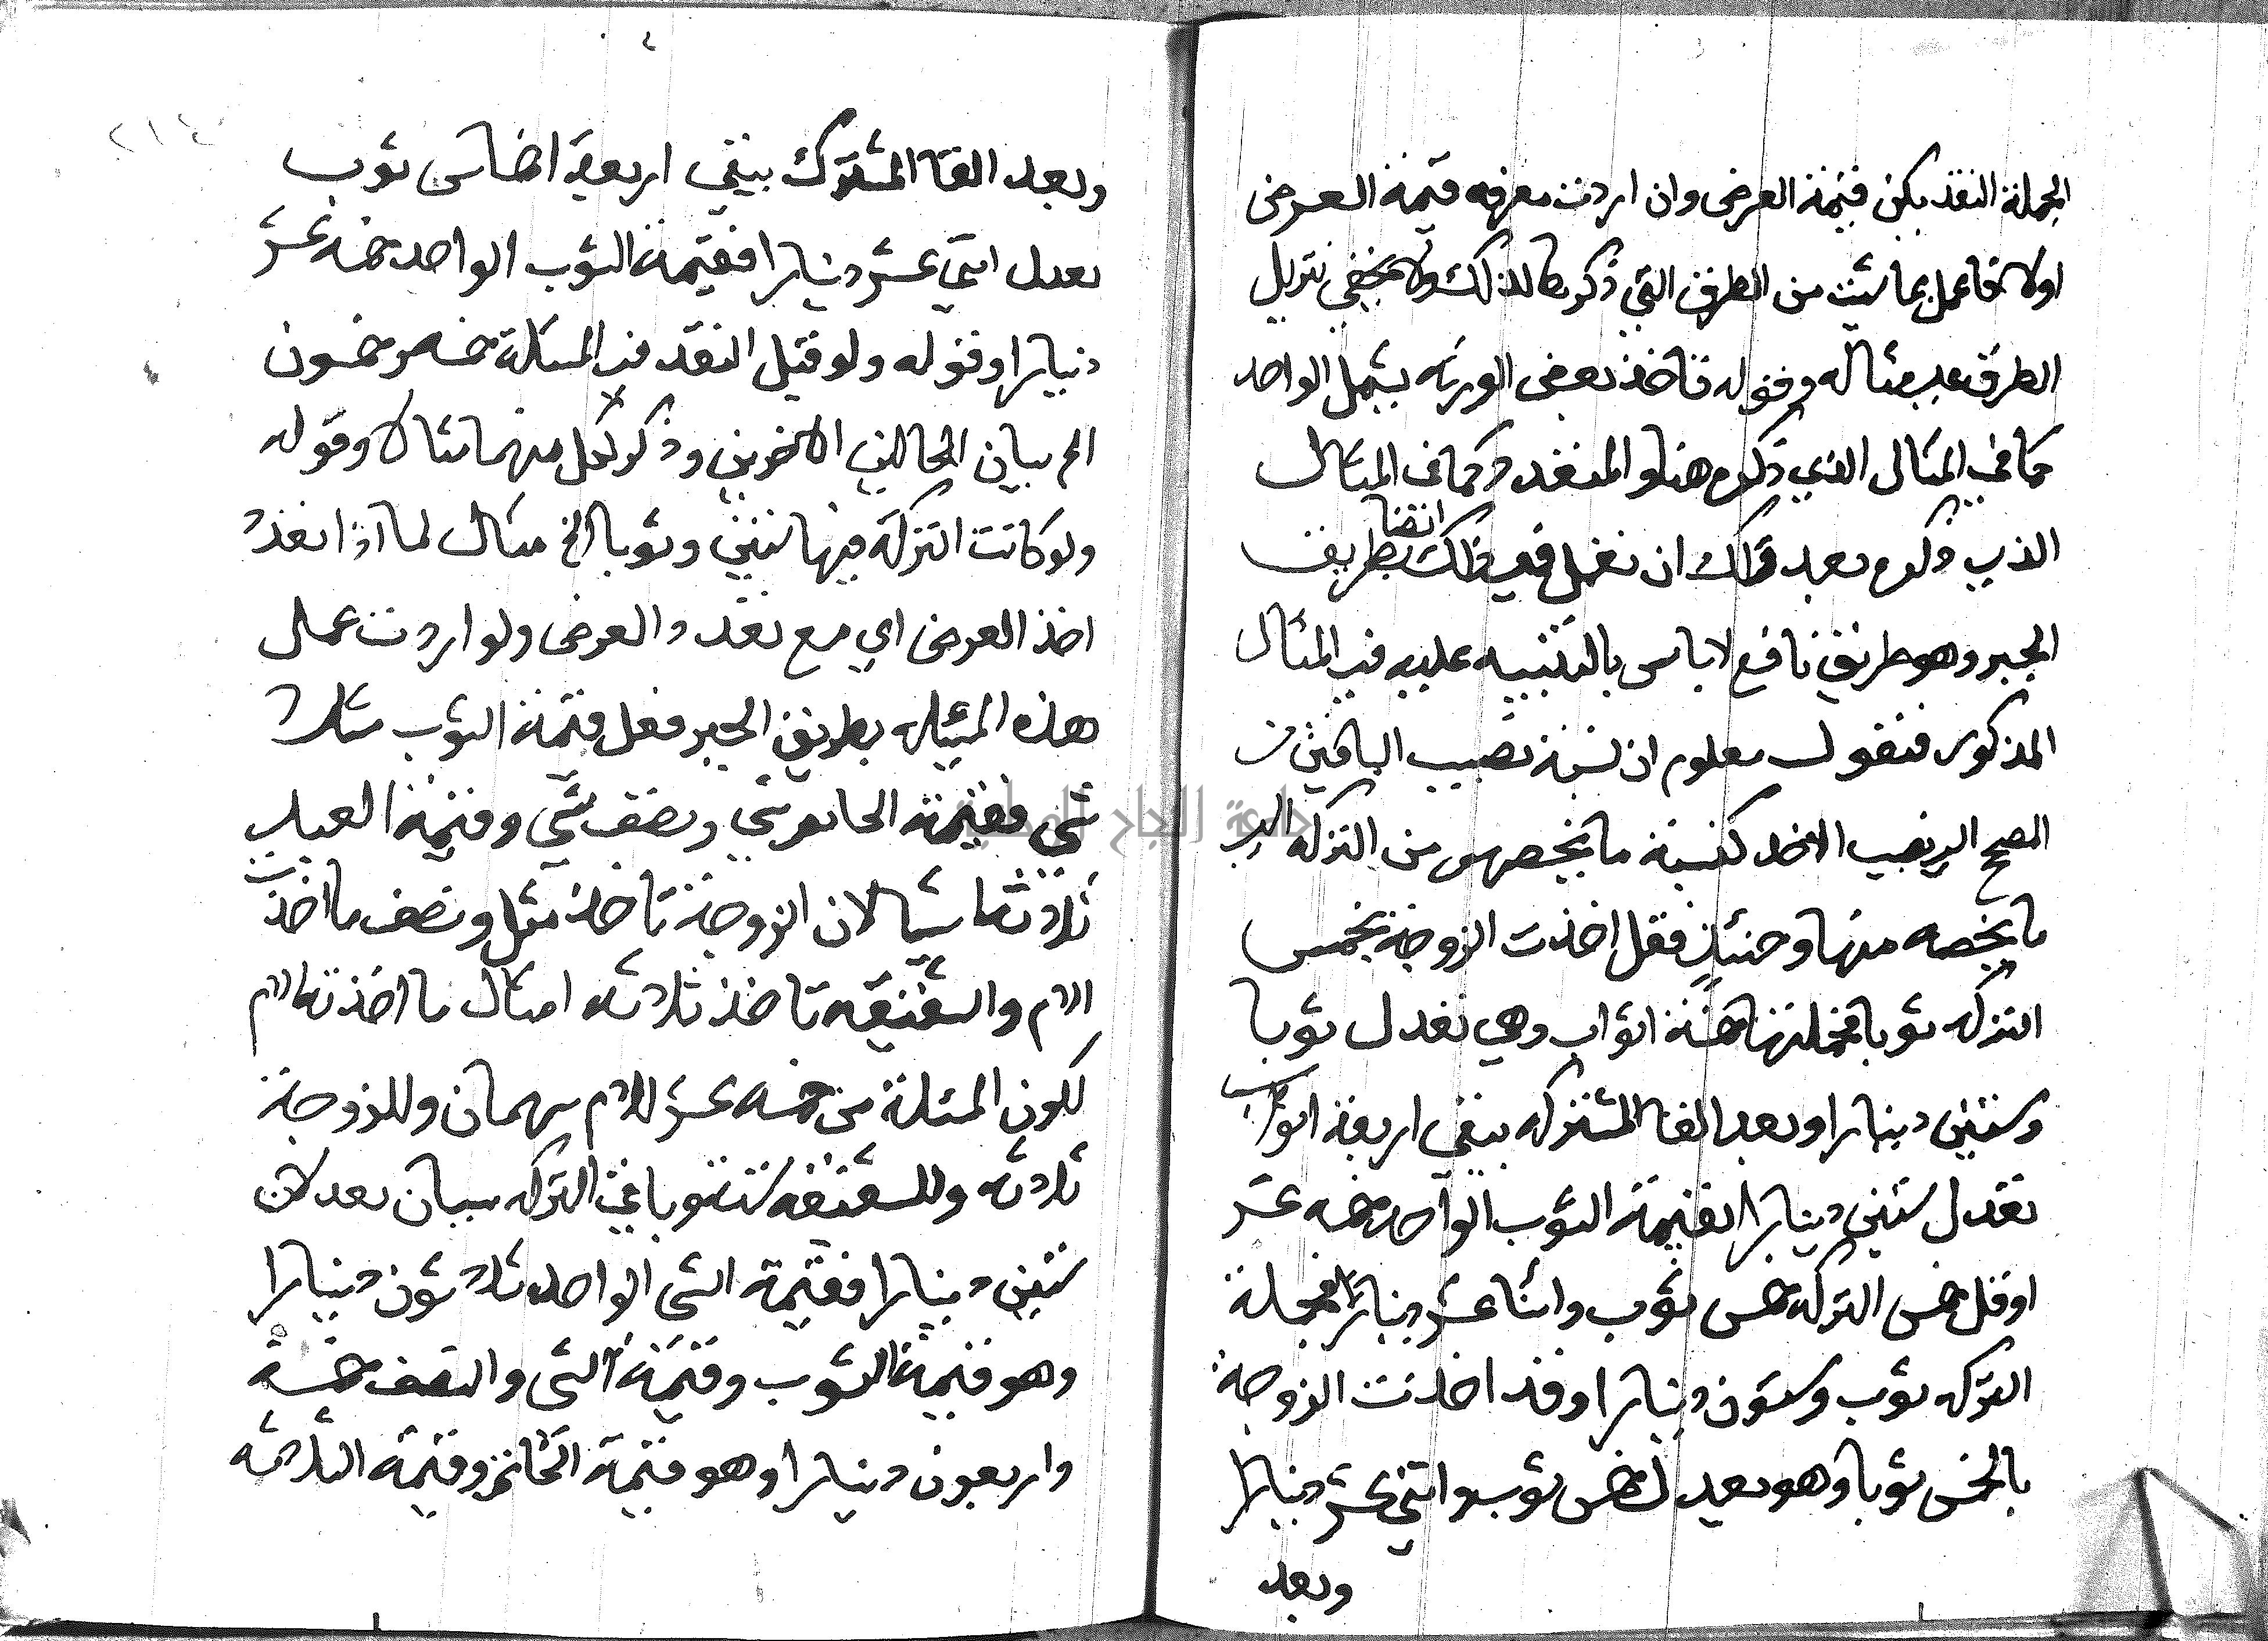 الجملة النقد يكن قيمة العرض وان اردت معرفه قيمة العرض
اولا فاعمل بما شيت من الطرق التي ذكرها لذلك ولا يخفي تنزيل
الطرق علي مثاله وقوله فاخذ بعض الورثه يشمل الواحد
كما في المثال الذي ذكره هنا والمتعدد كما في المثال
الذي ذكره بعد ولك ان تعمل في ذلك ايضا بطريق
الجبر وهو طريق نافع لا باس بالتنبيه عليه في المثال
المذكور فنقول معلوم ان نسبة نصيب الباقين من
المصح الي نصيب الاخد كنسبة ما يخصهم من التركه الي
ما يخصه منها وحنئذ فقل اخذت الزوجة بخمس
التركه ثوبا فجملتها خمسة اثواب وهي تعدل ثوبا
وستين دينارا وبعد القا المشتركه يبقي اربعة اثواب
تعدل ستين دينارا فقيمة الثوب الواحد خمسه عشر
او قل خمس التركه خمس ثوب واثنا عشر دينارا فجملة
التركه ثوب وستون دينارا وقد اخذت الزوجة
بالخمس ثوبا وهو يعدل خمس ثوب واثني عشر دينارا
وبعد
٢١٤
وبعد القا المشترك يبقي اربعة اخماس ثوب
تعدل اثني عشر دينارا فقيمة الثوب الواحد خمسه عشر
دينارا وقوله ولو قيل النقد في المسئلة خمسه وخمسون
الم بيان الحالين الاخرين وذكر لكل منهما مثالا وقوله
ولو كانت التركه فيها ستين وثوبا الخ مثال لما اذا تعدد
اخذ العرض اي مع تعدد العرض ولو اردت عمل
هذه المسئله بطريق الجبر فقل قيمة الثوب مثلا
شي فقيمة الخاتم شي ونصف شي وقيمة العبد
ثلاثة اشيا لان الزوجة تاخذ مثل ونصف ما اخذت
الام والشقيقه تاخذ ثلاثه امثال ما اخذته الام
لكون المسئلة من خمسه عشر للام سهمان وللزوجة
ثلاثه وللشقيقه ستة وباقي التركه سيان تعدلان
ستين دينارا فقيمة الشي الواحد ثلاثون دينارا
وهو قيمة الثوب وقيمة الشي والنصف خمسة
واربعون دينارا وهو قيمة الخاتم وقيمة الثلاثه
جامعة النجاح الوطنية